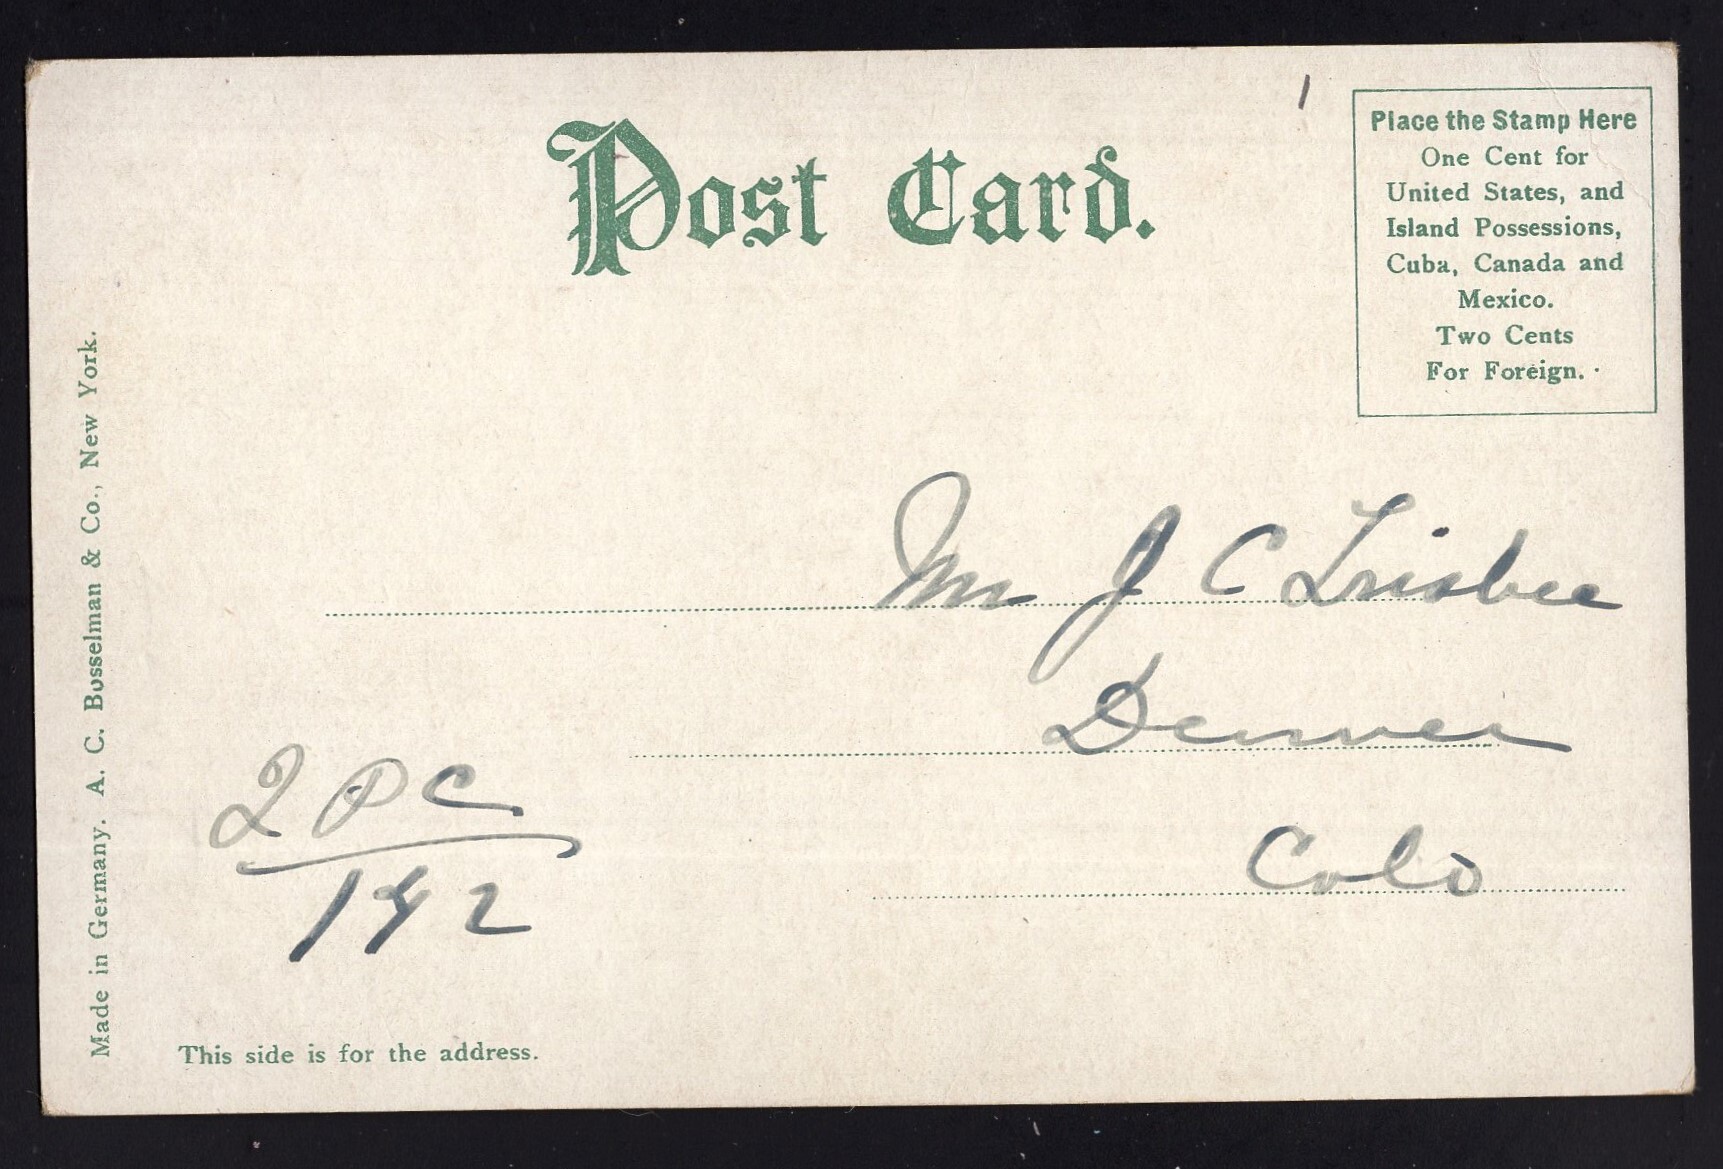 Post Card.
Place the Stamp Here
One Cent for
United States, and
Island Possessions,
Cuba, Canada and
Mexico.
Two Cents
For Foreign.
Made in Germany. A. C. Bosselman & Co., New York.
J C Frisbee
Denver
Colo
2 PC
This side is for the address.